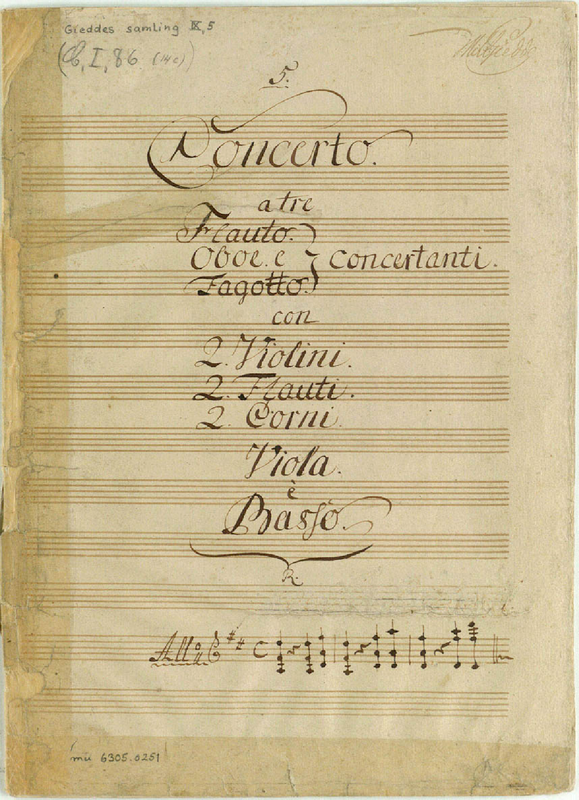 Gieddes samling IX, 5
5.
Concerto.
a tre
Flauto.
Oboe. e } Concertanti.
Fagotto.
con
2. Violini.
2. Flauti.
2. Corni.
Viola.
è
Basso.
R.
All:o
C
mu 6305.0251